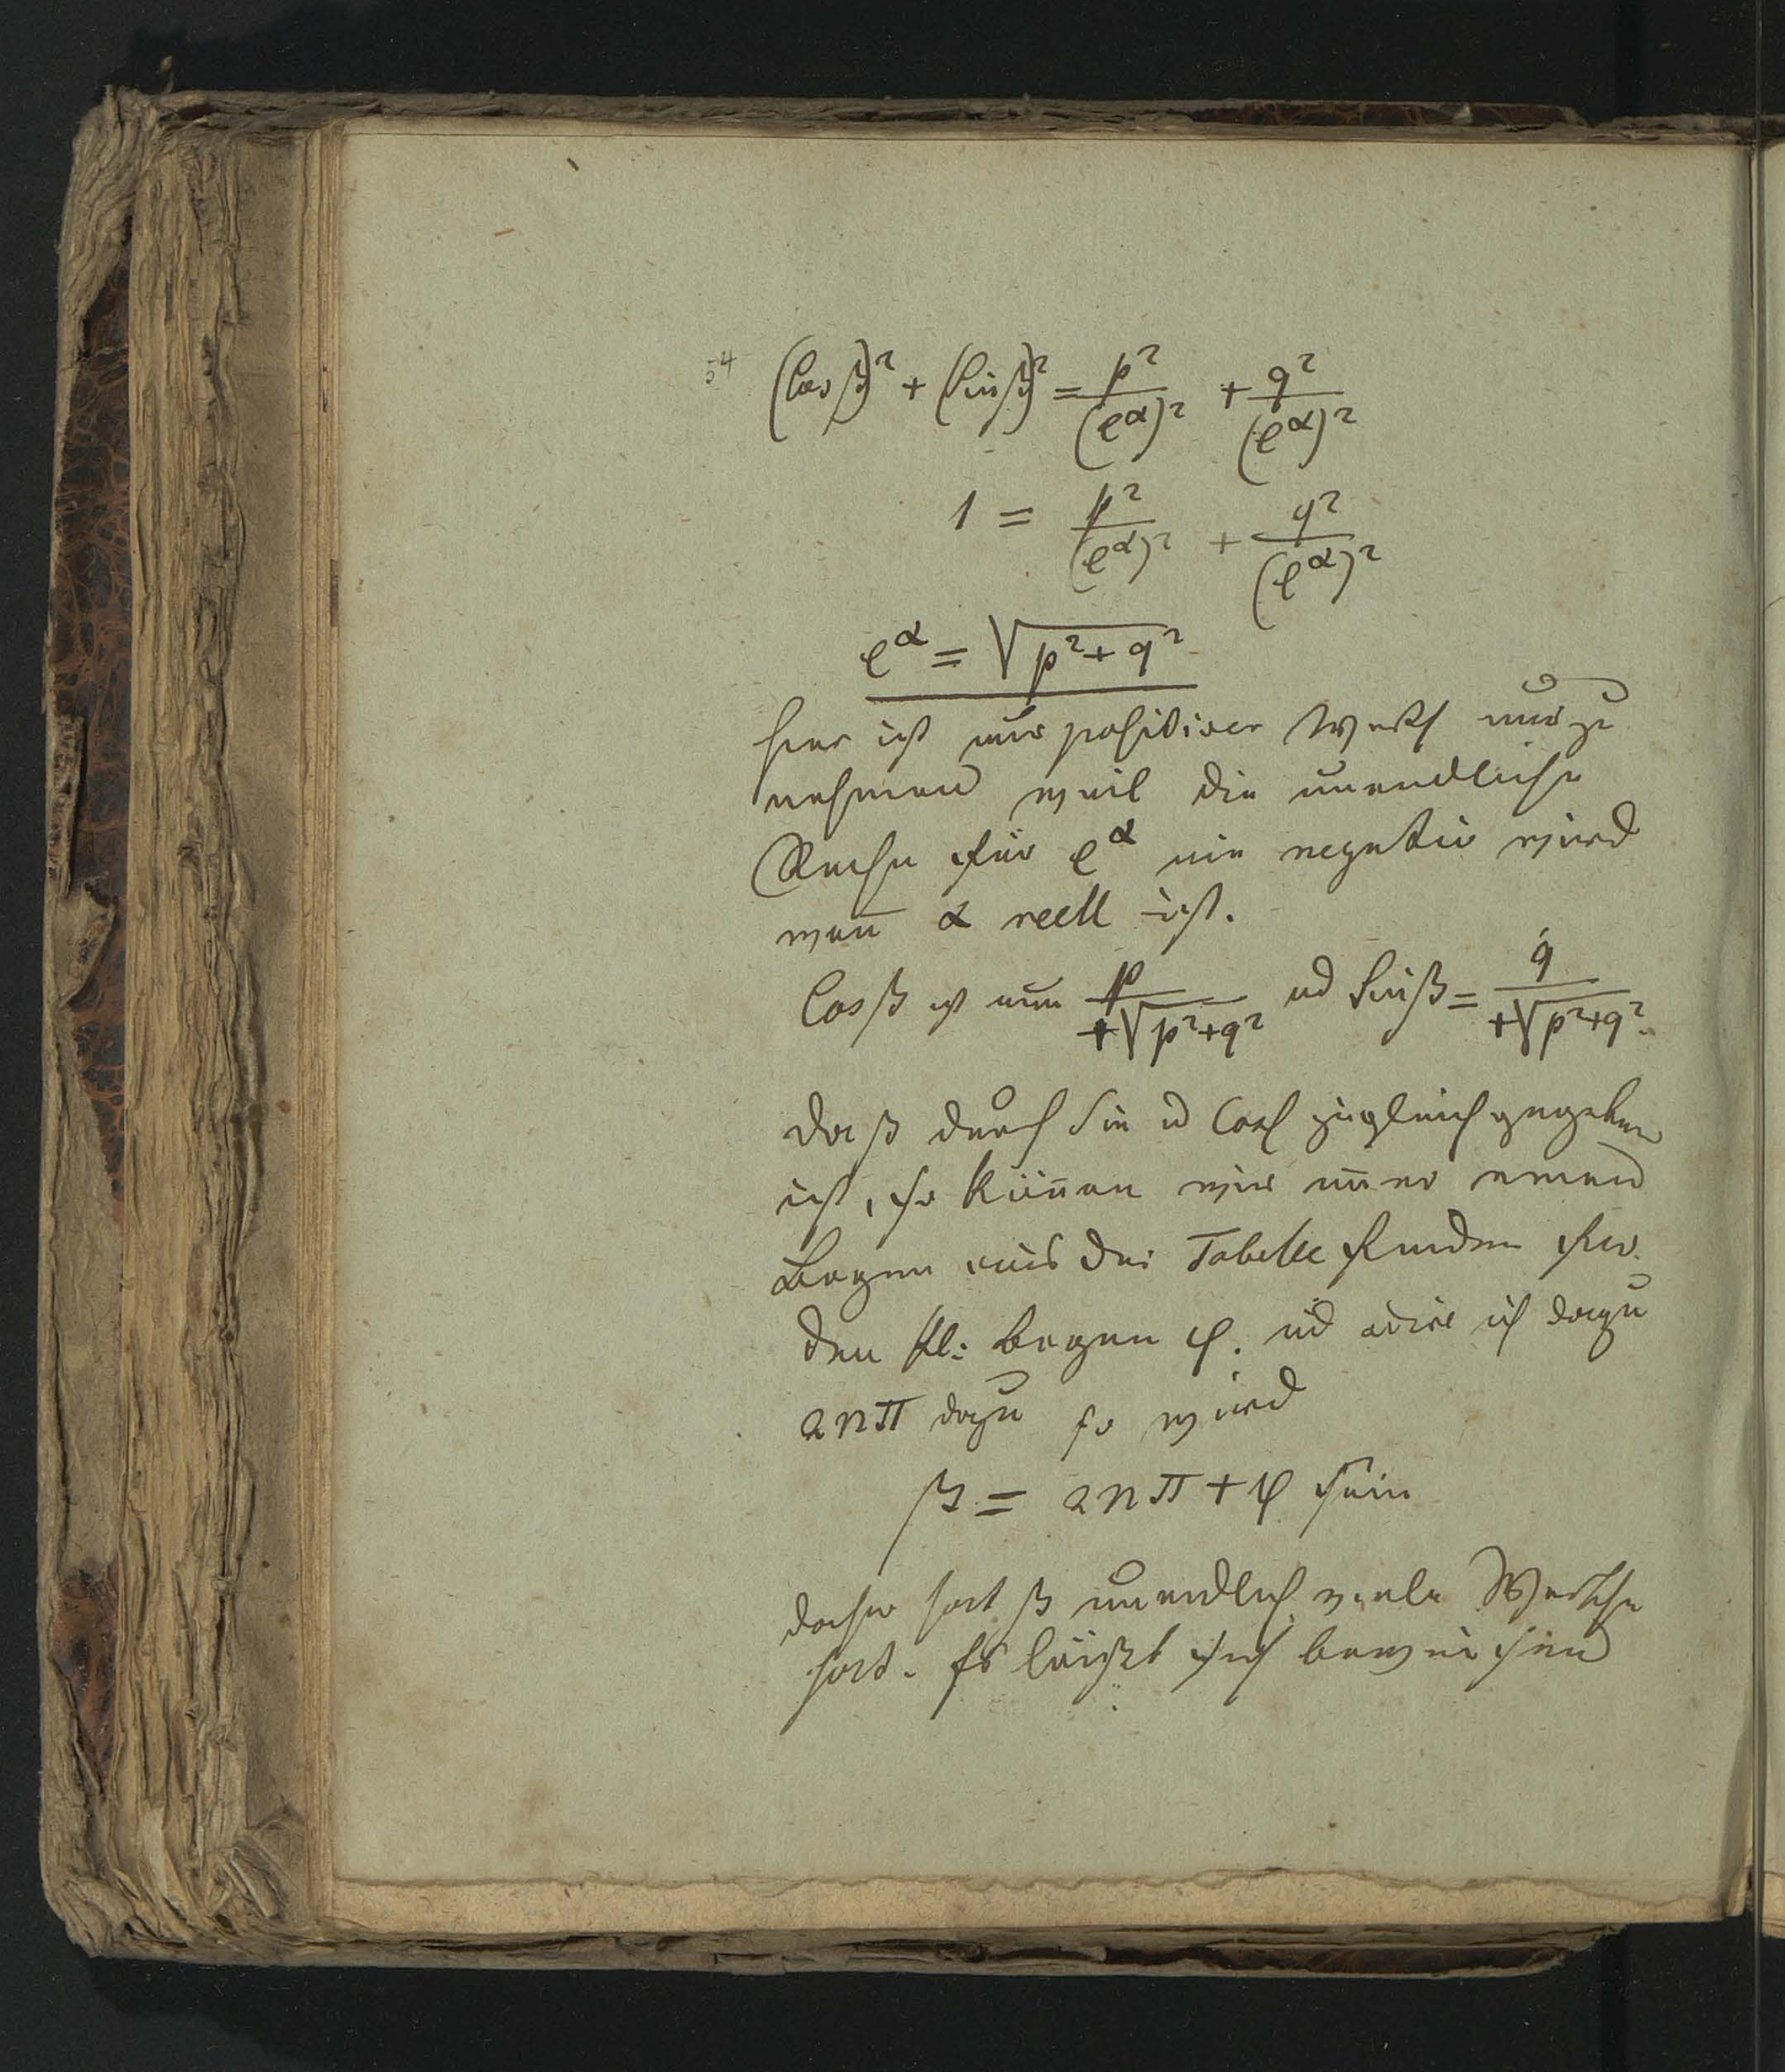 54 (Cos β)² + (Sin β)² = p²/(e^α)² + q²/(e^α)²
1 = p²/(e^α)² + q²/(e^α)²
e^α = √(p²+q²)
hier ist nur positiver Werth nur zu
nehmen weil die unendliche
Reihe für e^α nie negativ wird
weñ α reell ist.
Cosβ ist nun p/+√(p²+q²) ud Sinβ = q/+√(p²+q²).
Da β durch Sin u Cos zugleich gegeben
ist, so köñen wir im̄er einen
Bogen aus der Tabelle finden
den kl: Bogen φ. ud ich dazu
2nπ dazu so wird
β = 2nπ + φ sein
daher hat β unendlich viele Werthe
hat. Es läßt sich beweisen